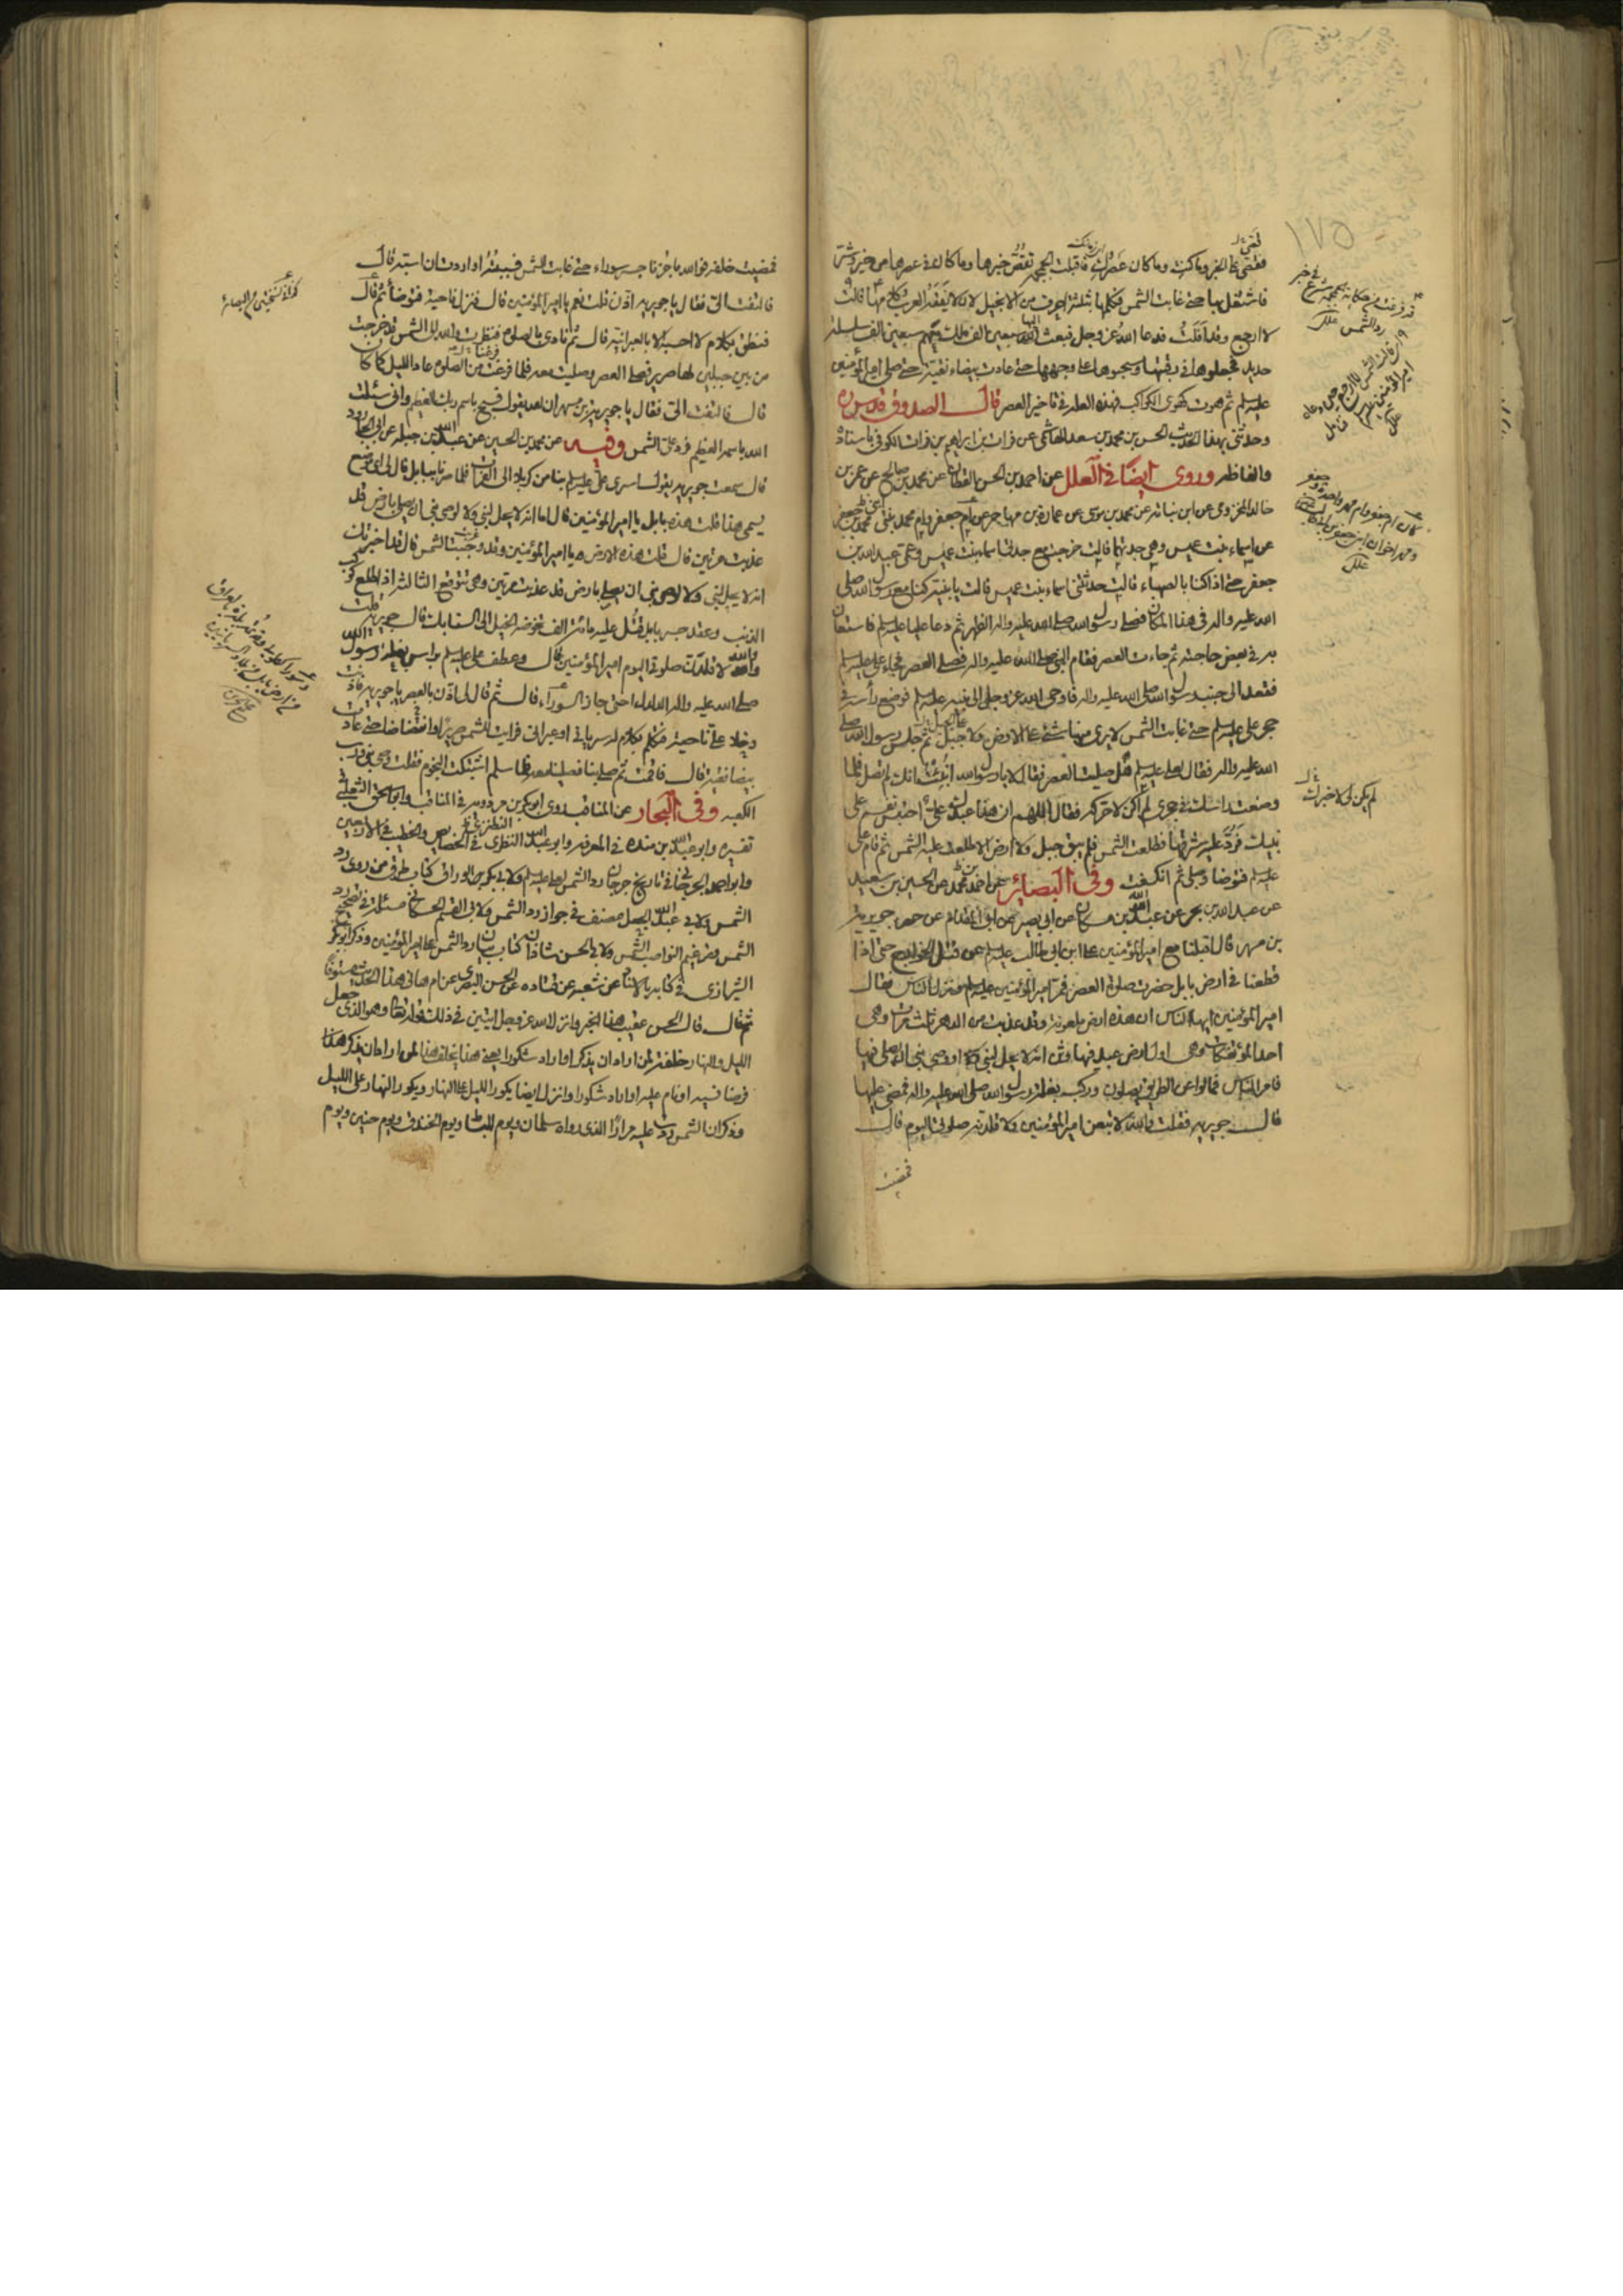 فقصّی علیّ الخبر وما کنت وما کان عصرک فاقبلت الجمجمة تقصّ خبرها وما کان فی عصرها من خیر وشرّ
فاشتغل بها حتی غابت الشمس فکلمها بثلثة احرف من الانجیل لان لا یفقه العرب کلامها قالت
لا ارجع وقد افلتُ فدعا الله عز وجل فبعث الیها سبعین الف ملک معهم سبعین الف سلسلة
حدید فجعلوها فی رقبتها وسحبوها علی وجهها حتی عادت بیضاء نقیة حتی صلی امیر المؤمنین
علیه السلم ثم هوت کهوی الکواکب فهذه العلة فی تاخیر العصر قال الصدوق قدس سره
وحدثنی بهذا الحدیث الحسن بن محمد بن سعد الهاشمی عن فرات بن ابراهیم بن فرات الکوفی باسناده
والفاظه وروی ایضا فی العلل عن احمد بن الحسن القطان عن محمد بن صالح عن عمر بن
خالد المخزومی عن ابن نباته عن محمد بن موسی عن عمارة بن مهاجر عن ام جعفر وام محمد بنتی محمد بن جعفر
عن اسماء بنت عمیس وهی جدتهما قالت خرجت مع جدتی اسماء بنت عمیس وعمی عبد الله بن
جعفر حتی اذا کنا بالصهباء قالت حدثتنی اسماء بنت عمیس قالت یا بنیة کنا مع رسول الله صلی
الله علیه واله فی هذا المکان فصلی رسول الله صلی الله علیه واله الظهر ثم دعا علیا علیه السلم فاستعان
به فی بعض حاجته ثم جاءت العصر فقام النبی صلی الله علیه واله فصلی العصر فجاء علی علیه السلم
فقعد الی جنب رسول الله صلی الله علیه واله فاوحی الله عز وجل الی نبیه علیه السلم فوضع رأسه فی
حجر علی علیه السلم حتی غابت الشمس لا یری منها شئ علی الارض ولا جبل ثم جلس رسول الله صلی
الله علیه واله فقال لعلی علیه السلم هل صلیت العصر فقال لا یا رسول الله انبئت انک لم تصل فلما
وضعت راسک فی حجری لم اکن لاحرکه فقال اللهم ان هذا عبدک علی احتبس نفسه علی
نبیک فردّ علیه شرقها فطلعت الشمس فلم یبق جبل ولا ارض الا طلعت علیه الشمس ثم قام علی
علیه السلم فتوضا وصلی ثم انکسفت وفی البصائر عن احمد بن محمد عن الحسین بن سعید
عن عبد الله بن بحر عن عبد الله بن مسکان عن ابی بصیر عن ابی المقدام عن جویریة
بن مسهر قال اقبلنا مع امیر المؤمنین علی ابن ابی طالب علیه السلم من قتل الخوارج حتی اذا
قطعنا فی ارض بابل حضرت صلوة العصر فنزل امیر المؤمنین علیه السلم ونزل الناس فقال
امیر المؤمنین ایها الناس ان هذه ارض ملعونة وقد عذبت من الدهر ثلث مرات وهی
احد المؤتفکات وهی اول ارض عبد فیها وثن انه لا یحل لنبی ولا وصی نبی ان یصلی فیها
فامر الناس فمالوا عن الطریق یصلون ورکب بغلة رسول الله صلی الله علیه واله فمضی علیها
قال جویریه فقلت والله لاتبعن امیر المؤمنین ولاقلدنه صلوتی الیوم قال
فمضیت
١٧٥
لم یکن لی لاخبرک
فمضیت خلفه فوالله ما جزنا جسر سوراء حتی غابت الشمس فسببته او اردت ان اسبه قال
فالتفت الیّ فقال یا جویریه اذّن قلت نعم یا امیر المؤمنین قال فنزل ناحیة فتوضأ ثم قال
فنطق بکلام لا احسبه الا بالعبرانیة قال ثم نادی بالصلوة فنظرت والله الی الشمس قد خرجت
من بین جبلین لها صریر فصلی العصر وصلیت معه فلما فرغت من الصلوة عاد اللیل کما کان
قال فالتفت الیّ فقال یا جویریة بن مسهر ان الله یقول فسبح باسم ربک العظیم وانی سئلت
الله باسمه العظیم فرد علیّ الشمس وفیه عن محمد بن الحسین عن عبد الله بن جبله عن ابی الجارود
قال سمعت جویریه یقول اسری علی علیه السلم بنا من کربلا الی الفرات فلما صرنا ببابل قال لی ای موضع
یسمی هذا قلت هذه بابل یا امیر المؤمنین قال اما انه لا یحل لنبی ولا وصی نبی ان یصلی بارض قد
عذبت مرتین قال قلت هذه الارض یا امیر المؤمنین وقد وجبت الشمس قال قد اخبرتک
انه لا یحل لنبی ولا وصی نبی ان یصلی بارض قد عذبت مرتین وهی تتوقع الثالثة اذا طلع کوکب
الذنب وعقد جسر بابل قتل علیه مائة الف تخوضه الخیل الی السنابک قال جویریه قلت
والله لاقلدن صلوتی الیوم امیر المؤمنین قال وعطف علی علیه السلم براس بغلة رسول
صلی الله علیه واله الدلدل حتی جاز السوراء قال ثم قال لی اذّن بالعصر یا جویریه فاذنت
وخلا علی ناحیة فتکلم بکلام له سریانی او عبرانی فرایت للشمس صریرا وانقضاضا حتی عادت
بیضا نقیة قال فاقمت ثم صلی بنا فصلینا معه فلما سلم اشتبکت النجوم فقلت وصی نبی ورب
الکعبه وفی البحار عن المناقب روی ابو بکر بن مردویه فی المناقب وابو اسحق الثعلبی فی
تفسیره وابو عبد الله بن منده فی المعرفه وابو عبد الله النطنزی فی الخصایص والخطیب فی الاربعین
وابو احمد الجرجانی فی تاریخ جرجان رد الشمس لعلی علیه السلم ولابی بکر الوراق کتاب طرق من روی رد
الشمس ولابی عبد الله الجعل مصنف فی جواز رد الشمس ولابی القسم الحسکانی مسئلة فی تصحیح رد
الشمس وترغیم النواصب الشمس ولابی الحسن شاذان کتاب بیان رد الشمس علی امیر المؤمنین وذکر ابو بکر
الشیرازی فی کتابه بالاسناد عن شعبه عن قتاده عن الحسن البصری عن ام هانی هذا الحدیث مستوفیً
ثم قال قال الحسن عقیب هذا الخبر وانزل الله عز وجل ایتین فی ذلک قوله تعالی وهو الذی جعل
اللیل والنهار خلفة لمن اراد ان یذکر او اراد شکورا یعنی هذا یخلف هذا لمن اراد ان یذکر هذا
فرضا نسیه او نام علیه او اراد شکورا وانزل ایضا یکور اللیل علی النهار ویکور النهار علی اللیل
وذکر ان الشمس ردت علیه مرارا الذی رواه سلمان ویوم البساط ویوم الخندق ویوم حنین ویوم